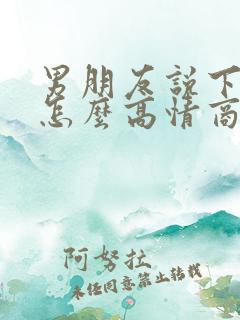 男朋友说下
怎麼高情商
阿努拉
未经同意禁止转载